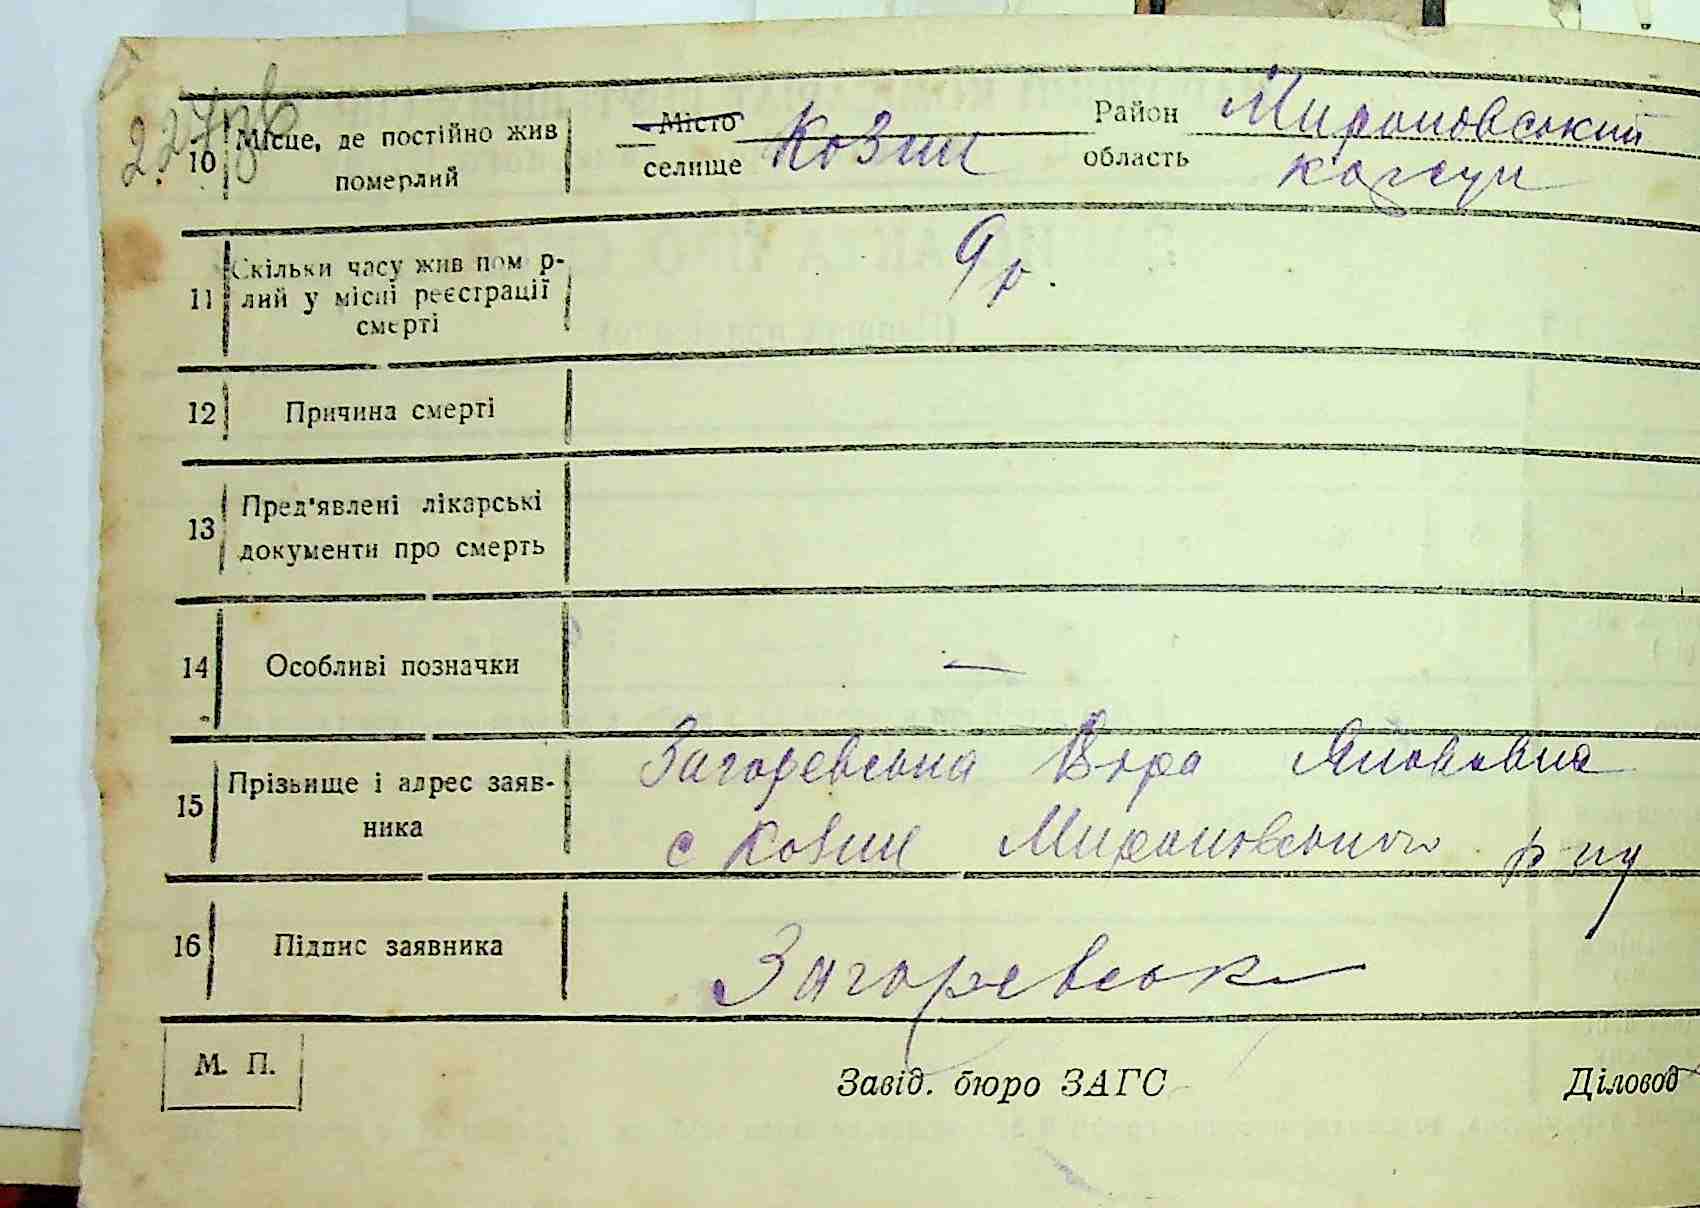 10 Місце, де постійно жив померлий
Місто
селище Козин
Район Мироновський
область
11 Скільки часу жив пом р-
лий у місці реєстрації
смерті
9 р.
12 Причина смерті
13 Пред'явлені лікарські
документи про смерть
14 Особливі позначки
—
15 Прізвище і адрес заяв-
ника
Загоревська Віра Якововна
с Козин Мироновського р-ну
16 Підпис заявника
Загоревськ
М. П.
Завід. бюро ЗАГС
Діловод